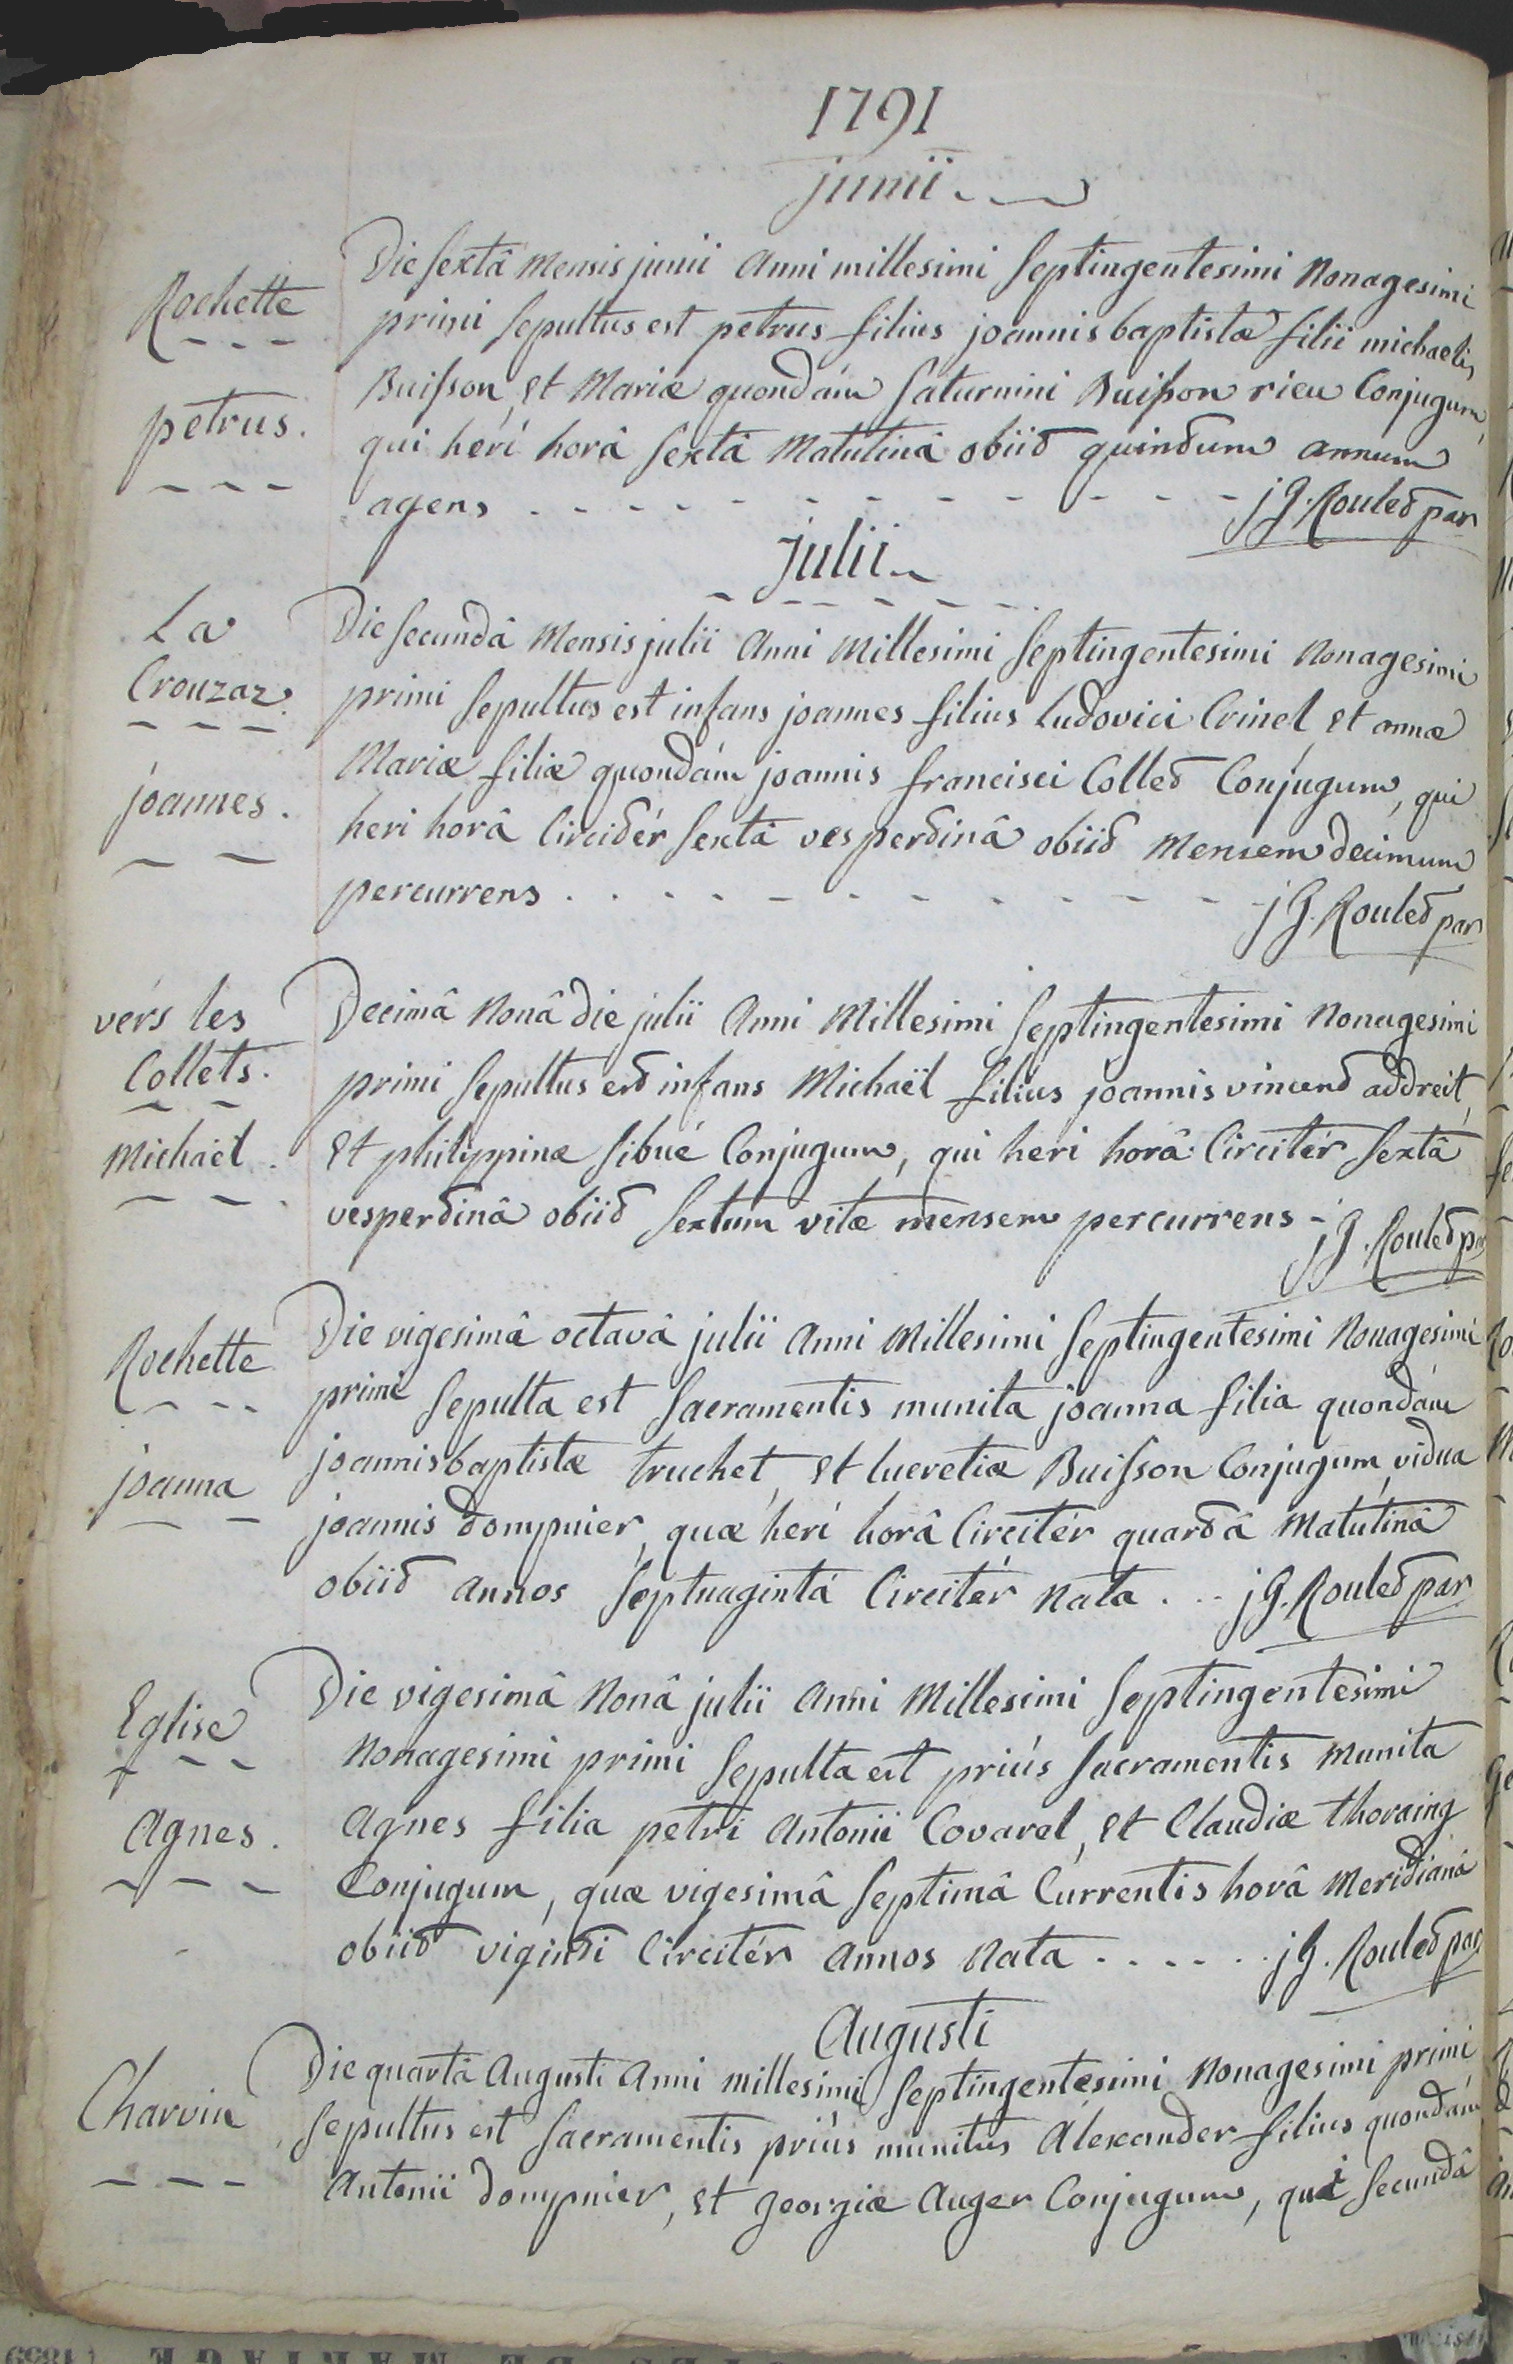 1791
junii
Rochette
petrus.
Die sextâ Mensis junii Anni millesimi septingentesimi Nonagesimi
primi sepultus est petrus filius joannis baptistæ filii michaelis
Buisson, et Mariæ quondám Saturnini Buisson rieu Conjugum,
qui heri horâ sextâ Matutinâ obiit quintum annum
agens - - - - - - - - - - j G. Roulet par
julii
La
Crouzaz
joannes.
Die secundâ Mensis julii Anni Millesimi septingentesimi Nonagesimi
primi sepultus est infans joannes filius Ludovici Crinel, et annæ
Mariæ filiæ quondám joannis francisci Collet Conjugum, qui
heri horâ Circitér sextâ vespertinâ obiit Mensem decimum
percurrens . . . . - - - - - - - j G. Roulet par
vérs les
Collets.
Michaël.
Decimâ Nonâ die julii Anni Millesimi septingentesimi Nonagesimi
primi sepultus est infans Michaël filius joannis vincent addreit,
Et philippinæ sibué Conjugum, qui heri horâ Circitér sextâ
vespertinâ obiit sextum vitæ mensem percurrens - j G. Roulet par
Rochette
joanna
Die vigesimâ octavâ julii Anni Millesimi septingentesimi Nonagesimi
primi sepulta est sacramentis munita joanna filia quondám
joannis baptistæ truchet, et lucretiæ Buisson Conjugum, vidua
joannis dompnier, quæ heri horâ Circitér quartâ Matutinâ
obiit annos septuaginta Circitér Nata . . - j G. Roulet par
Eglise
Agnes.
Die vigesimâ Nonâ julii Anni Millesimi septingentesimi
Nonagesimi primi sepulta est priús sacramentis munita
Agnes filia petri Antonii Covarel, et Claudiæ thoraing
Conjugum, quæ vigesimâ septimâ Currentis horâ Meridianâ
obiit viginti Circitér annos Nata - - - - - . j G. Roulet par
Augusti
Charvin
Die quartâ Augusti Anni millesimi septingentesimi Nonagesimi primi
sepultus est sacramentis priús munitus Alexander filius quondám
Antonii dompnier, et georgiæ Auger Conjugum, qui secundâ